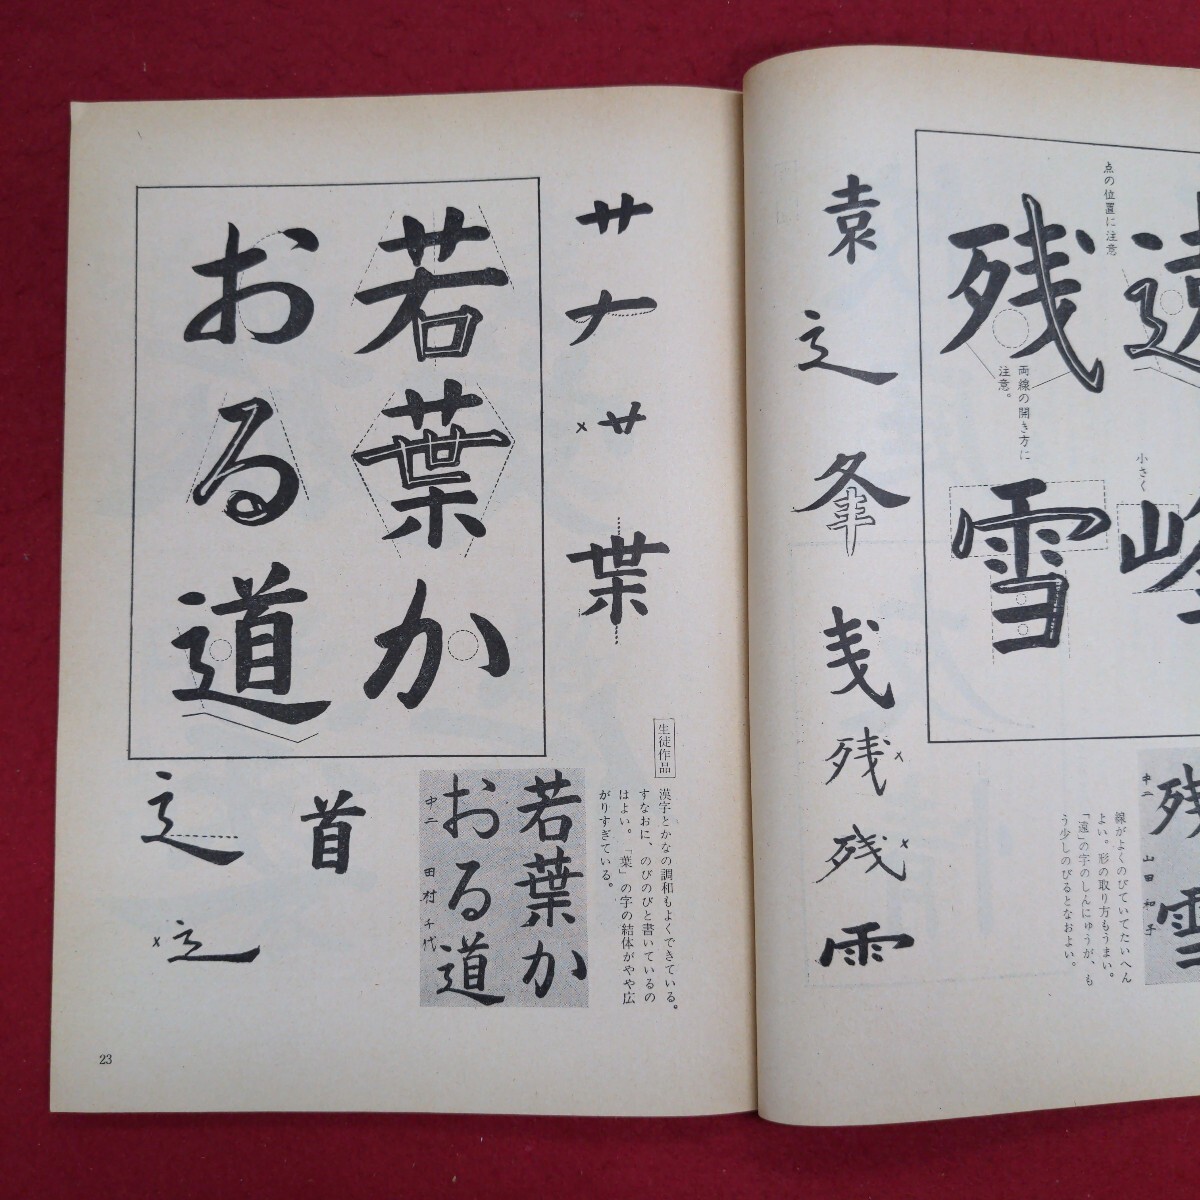 点の位置に注意
残雪
両線の開き方に
注意。
小さく
袁
夆
残
残
雨
線がよくのびていてたいへん
よい。形の取り方もうまい。
「遠」の字のしんにゅうが、も
う少しのびるとなおよい。
残雪
中二 山田和子
若葉か
おる道
葉
首
生徒作品
漢字とかなの調和もよくできている。
すなおに、のびのびと書いているの
はよい。「葉」の字の結体がやや広
がりすぎている。
若葉か
おる道
中二 田村千代
23